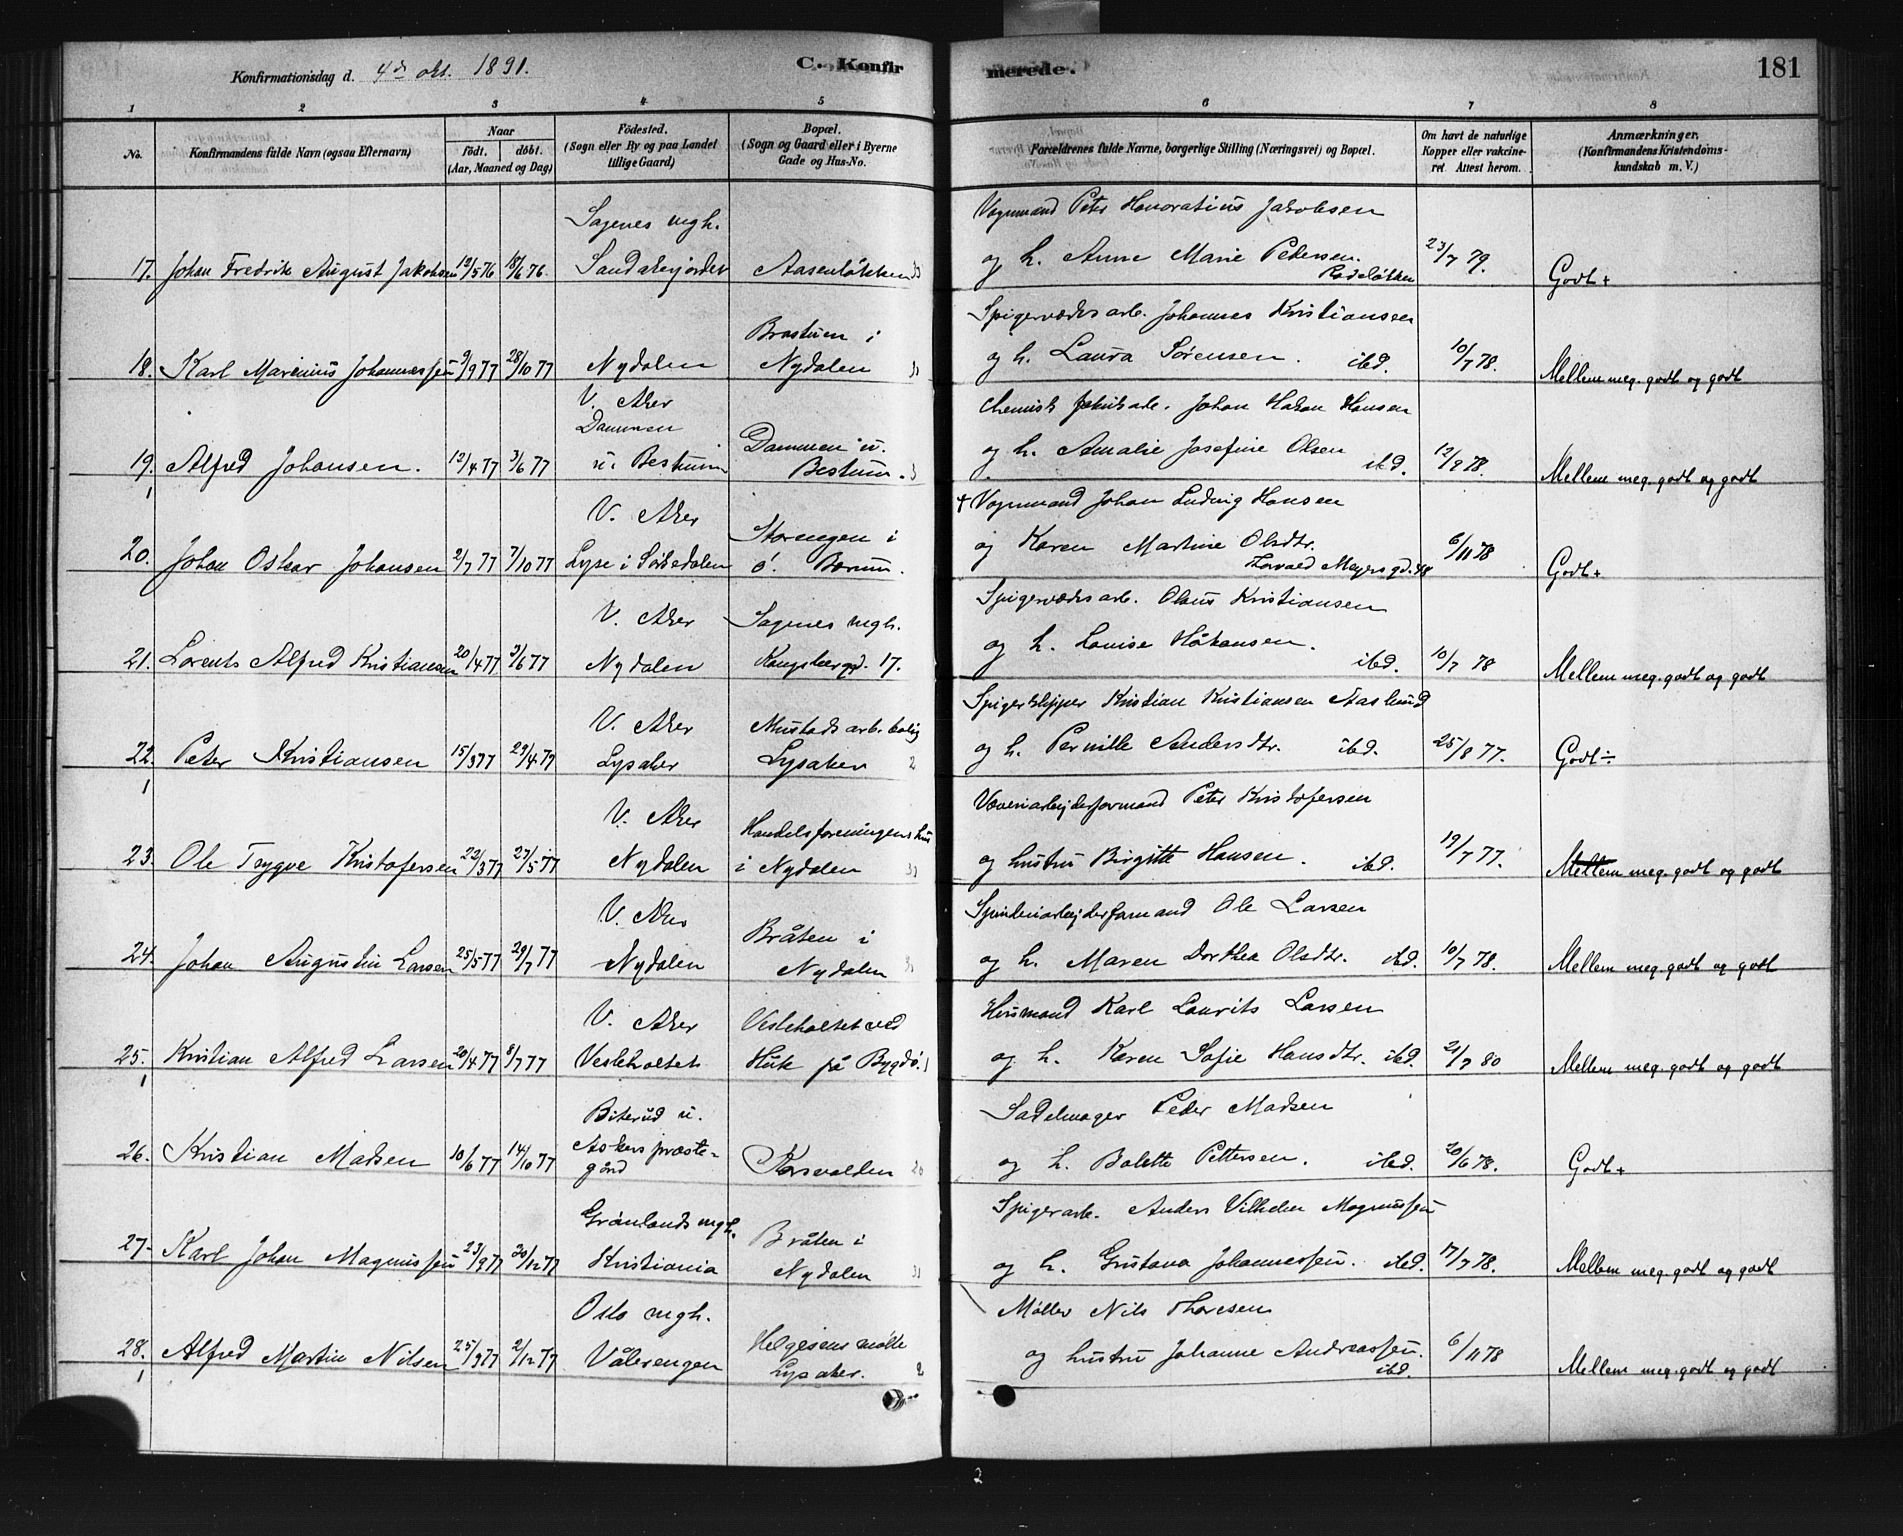 Konfirmationsdag d. 4de okt. 1891. C. Konfirmerede. 181
1 2 3 4 5 6 7 8
No. Konfirmandens fulde Navn (ogsaa Efternavn) Naar født, døbt. (Aar, Maaned og Dag) Fødested. (Sogn eller By og paa Landet tillige Gaard) Bopæl. (Sogn og Gaard eller i Byerne Gade og Hus-No. Forældrenes fulde Navne, borgerlige Stilling (Næringsvei) og Bopæl. Om havt de naturlige Kopper eller vakcineret Attest herom. Anmærkninger. (Konfirmandens Kristendomskundskab m. V.)
Sagenes mgh. Vognmand Peter Honoratius Jakobsen
17. Johan Fredrik August Jakobsen 12/5 76 18/6 76. Sandakerjordet Aasenløkken og h. Anne Marie Pedersen. Rodeløkken 23/7 79. Godt+
Braatuen i Spigerværksarb. Johannes Kristiansen
18. Karl Marinius Johannessen 9/9 77 28/10 77 Nydalen Nydalen og h. Laura Sørensen. ibd. 10/7 78. Mellem meg. godt og godt
V. Aker Chemisk fabrikarb. Johan Hakon Hansen
Dammen
19. Alfred Johansen. 12/4 77 3/6 77 u. Bestum Dammen u. Bestum. og h. Amalie Josefine Olsen ibd. 12/9 78. Mellem meg. godt og godt
V. Aker Storengen i + Vognmand Johan Ludvig Hansen
20. Johan Oskar Johansen 2/7 77 7/10 77 Lyse i Sørkedalen ø. Bærum. og Karen Martine Olsdtr. Torvald Meyers gd. 48 6/11 78 Godt+
V. Aker Sagenes mgh. Spigerværksarb. Olaus Kristiansen
21. Lorents Alfred Kristiansen 20/4 77 3/6 77 Nydalen Kongsbergd. 17. og h. Lovise Håkansen. ibd. 10/7 78 Mellem meg. godt og godt
V. Aker Mustads arb. bolig Spigerklipper Kristian Kristiansen Aaslund
22. Peter Kristiansen 15/3 77 29/4 77 Lysaker Lysaker 2 og h. Pernille Andersdtr. ibd. 25/8 77. Godt÷
V. Aker Handelsforeningens hus Væveriarbejderformand Peter Kristofersen
23. Ole Trygve Kristofersen 22/3 77 27/5 77 Nydalen i Nydalen og hustru Birgitte Hansen. ibd. 19/7 77. Mellem meg. godt og godt
V. Aker Bråten i Spinderiarbejderformand Ole Larsen
24. Johan Augustin Larsen 25/5 77 29/7 77 Nydalen Nydalen og h. Maren Dorthea Olsdtr. ibd. 10/7 78. Mellem meg. godt og godt
V. Aker Vesleholtet ved Husmand Karl Laurits Larsen
25. Kristian Alfred Larsen 20/4 77 8/7 77 Vesleholtet Huk på Bygdø. og h. Karen Sofie Hansdtr. ibd. 21/7 80 Mellem meg. godt og godt
Biterud u. Sadelmager Peder Madsen
26. Kristian Madsen 10/6 77 14/10 77 Askers præstegård Korsvolden og h. Bolette Pettersen. ibd. 20/6 78. Godt+
Grønlands mgh. Bråten i Spigerarb. Anders Vilhelm Magnussen
27. Karl Johan Magnussen 23/9 77 30/12 77 Kristiania Nydalen og h. Gustava Johannessen. ibd. 17/7 78. Mellem meg. godt og godt
Oslo mgh. Helgesens mølle Møller Nils Thoresen
28. Alfred Martin Nilsen 25/9 77 2/12 77 Vålerengen Lysaker. 2 og hustru Johanne Andreassen. ibd. 6/11 78 Mellem meg. godt og godt
2